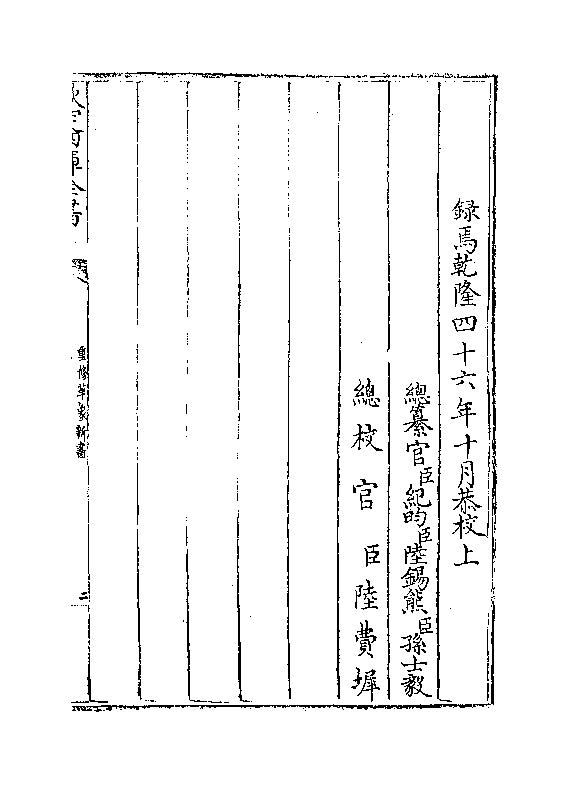 録焉乾隆四十六年十月恭校上
總纂官臣紀昀臣陸錫熊臣孫士毅
總校官臣陸費墀
欽定四庫全書
重修革象新書
二